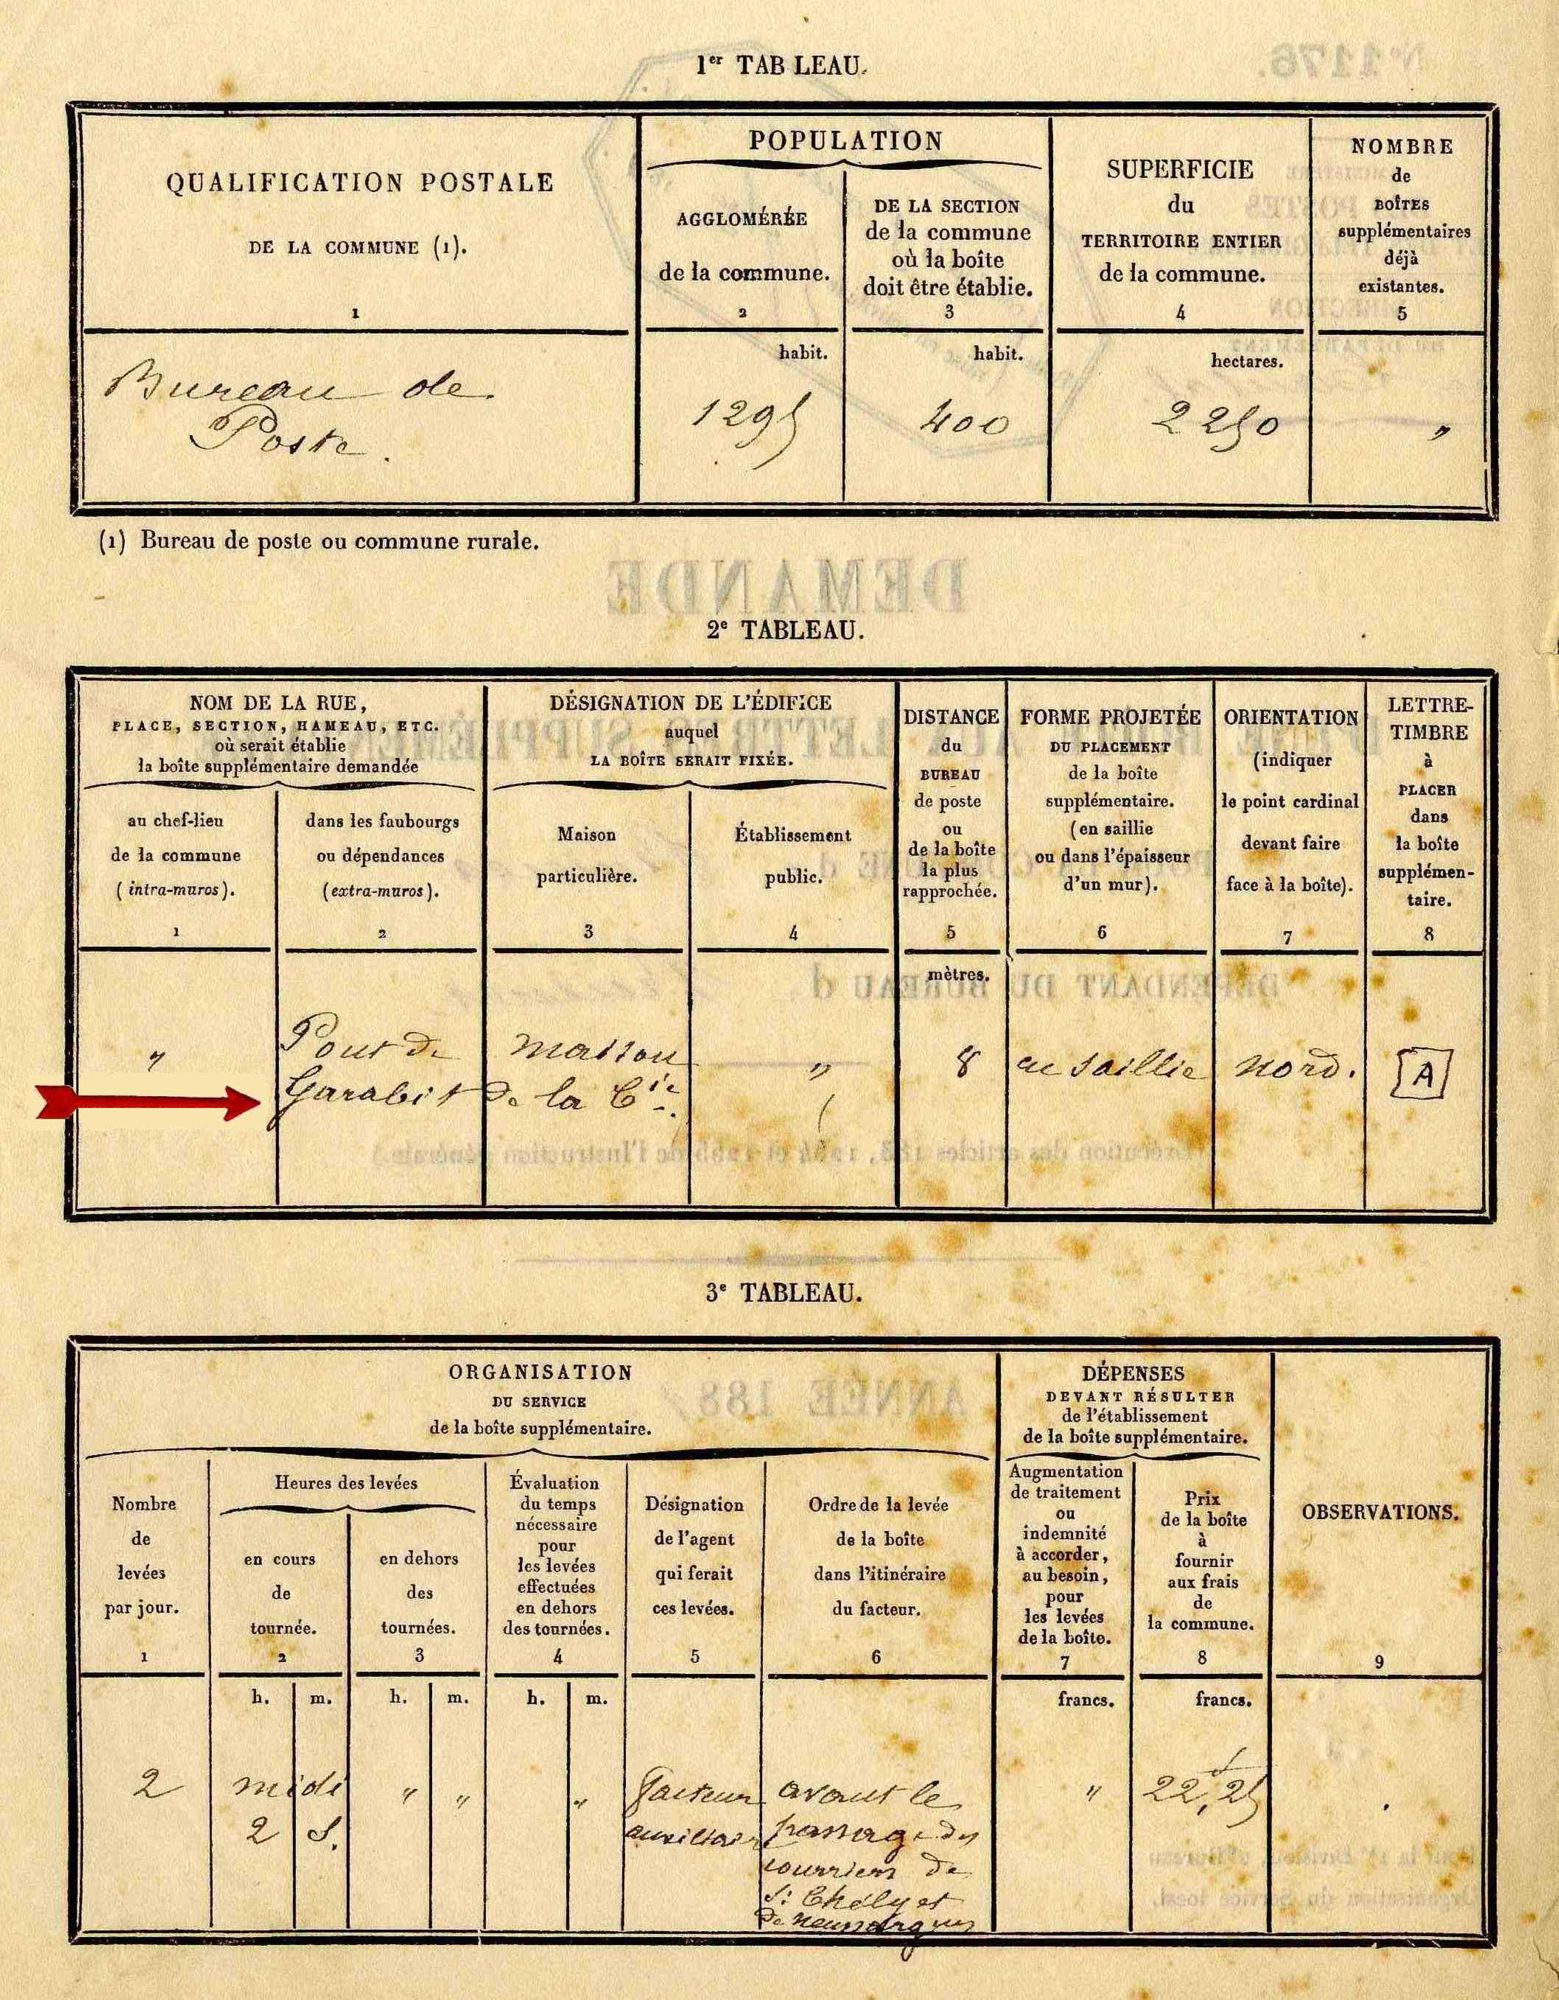 1er TABLEAU.
QUALIFICATION POSTALE
DE LA COMMUNE (1).
1
POPULATION
AGGLOMÉRÉE
de la commune.
2
DE LA SECTION
de la commune
où la boîte
doit être établie.
3
SUPERFICIE
du
TERRITOIRE ENTIER
de la commune.
4
NOMBRE
de
BOÎTES
supplémentaires
déjà
existantes.
5
habit.
habit.
hectares.
Bureau de
Poste.
1295
400
2250
"
(1) Bureau de poste ou commune rurale.
DEMANDE
2e TABLEAU.
NOM DE LA RUE,
PLACE, SECTION, HAMEAU, ETC.
où serait établie
la boîte supplémentaire demandée
au chef-lieu
de la commune
(intra-muros).
1
dans les faubourgs
ou dépendances
(extra-muros).
2
DÉSIGNATION DE L'ÉDIFICE
auquel
LA BOÎTE SERAIT FIXÉE.
Maison
particulière.
3
Établissement
public.
4
DISTANCE
du
BUREAU
de poste
ou
de la boîte
la plus
rapprochée.
5
FORME PROJETÉE
DU PLACEMENT
de la boîte
supplémentaire.
(en saillie
ou dans l'épaisseur
d'un mur).
6
ORIENTATION
(indiquer
le point cardinal
devant faire
face à la boîte).
7
LETTRE-
TIMBRE
à
PLACER
dans
la boîte
supplémen-
taire.
8
mètres.
"
Pont de
Garabit
maison
de la Cie.
"
8
en saillie
nord.
A
3e TABLEAU.
ORGANISATION
DU SERVICE
de la boîte supplémentaire.
Nombre
de
levées
par jour.
1
Heures des levées
en cours
de
tournée.
2
en dehors
des
tournées.
3
Évaluation
du temps
nécessaire
pour
les levées
effectuées
en dehors
des tournées.
4
Désignation
de l'agent
qui ferait
ces levées.
5
Ordre de la levée
de la boîte
dans l'itinéraire
du facteur.
6
DÉPENSES
DEVANT RÉSULTER
de l'établissement
de la boîte supplémentaire.
Augmentation
de traitement
ou
indemnité
à accorder,
au besoin,
pour
les levées
de la boîte.
7
Prix
de la boîte
à
fournir
aux frais
de
la commune.
8
OBSERVATIONS.
9
h. m. h. m. h. m. francs. francs.
2
midi
2 S.
" "
"
facteur
auxiliaire
avant le
passage des
courriers de
St Chély et
de Neussargues
"
22,25